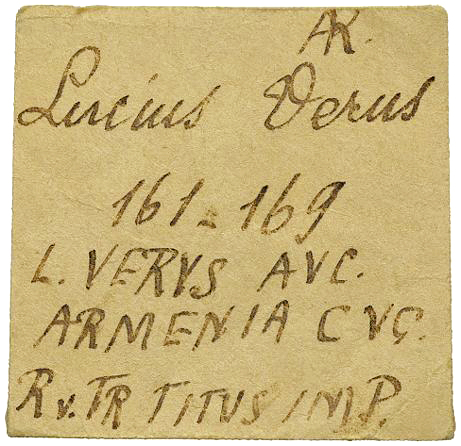 AR.
Lucius Verus
161-169
L. VERVS AVC.
ARMENIA CVS.
Rv. TR TITUS IMP.